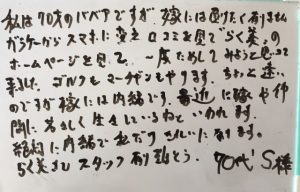 私は70才のババアですが嫁には負けたく有りません
ガラケーからスマホに変え口コミを見てらく美の
ホームページを見て、一度ためしてみようと思って
来ました。ゴルフもマージャンもやります。ちょっと遠い
のですが嫁には内緒です。最近に嫁や仲
間に若々しく生々しているといわれます。
絶対に内緒で私だけきれいに有ります。
らく美さむスタッフ有難とう。
70代 S様